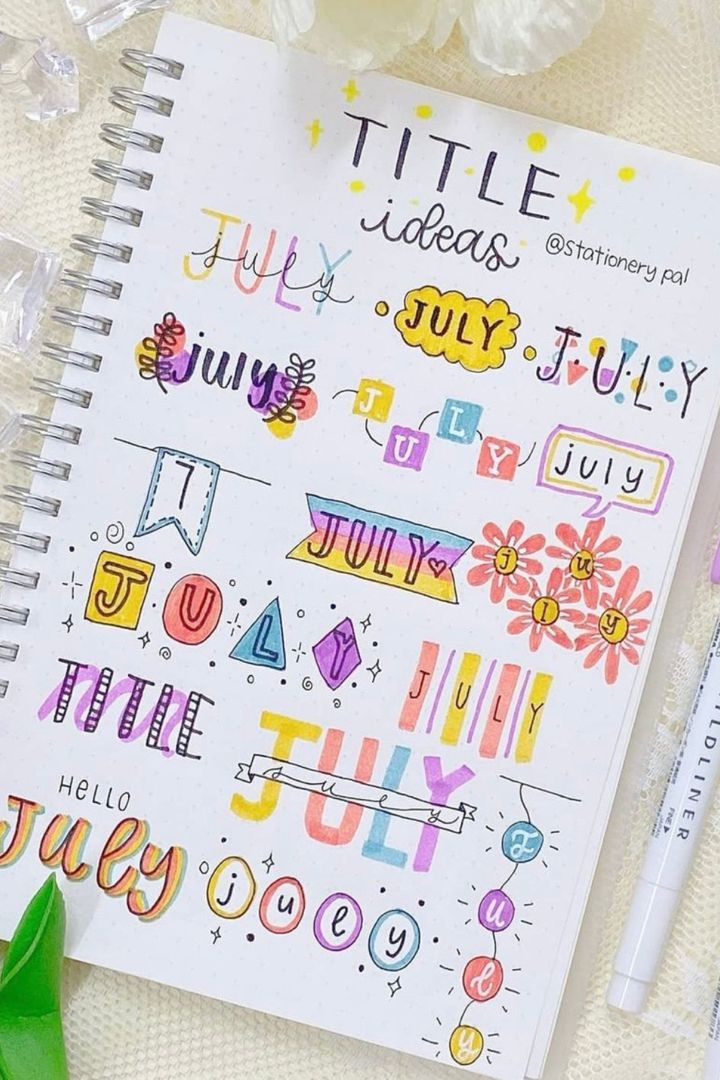 TITLE
ideas
@stationery pal
JULY
july
JULY
JULY
july
JULY
july
7
JULY
july
JULY
JULY
TITLE
JULY
july
HELLO
July
july
July
LDLINER
FINE